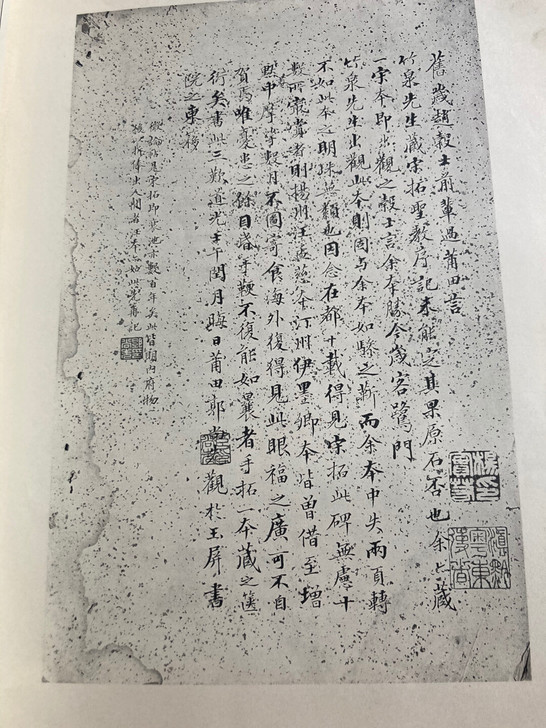 舊歲趙穀士前輩過莆田言
竹泉先生藏宋拓聖教序記未能定其果原石否也余亦藏
一宋本即出觀之穀士言余本勝今歲客鷺門
竹泉先生出觀此本則固與余本如驂之靳而余本中失兩頁轉
不如此本之明珠無纇也因念在都十載得見宋拓此碑無慮十
數所最賞者則揚州汪孟慈本汀州伊墨卿本皆曾借至
齋中摩挲數月不圖寄食海外復得見此眼福之廣可不自
賀焉唯憂患之餘目昏手鞕不復能如曩者手拓一本藏之篋
衍矣書此三歎道光壬午閏月晦日莆田郭尚先觀於玉屏書
院之東樓
無論的是宋拓即裝池亦數百年矣此皆內府物
後